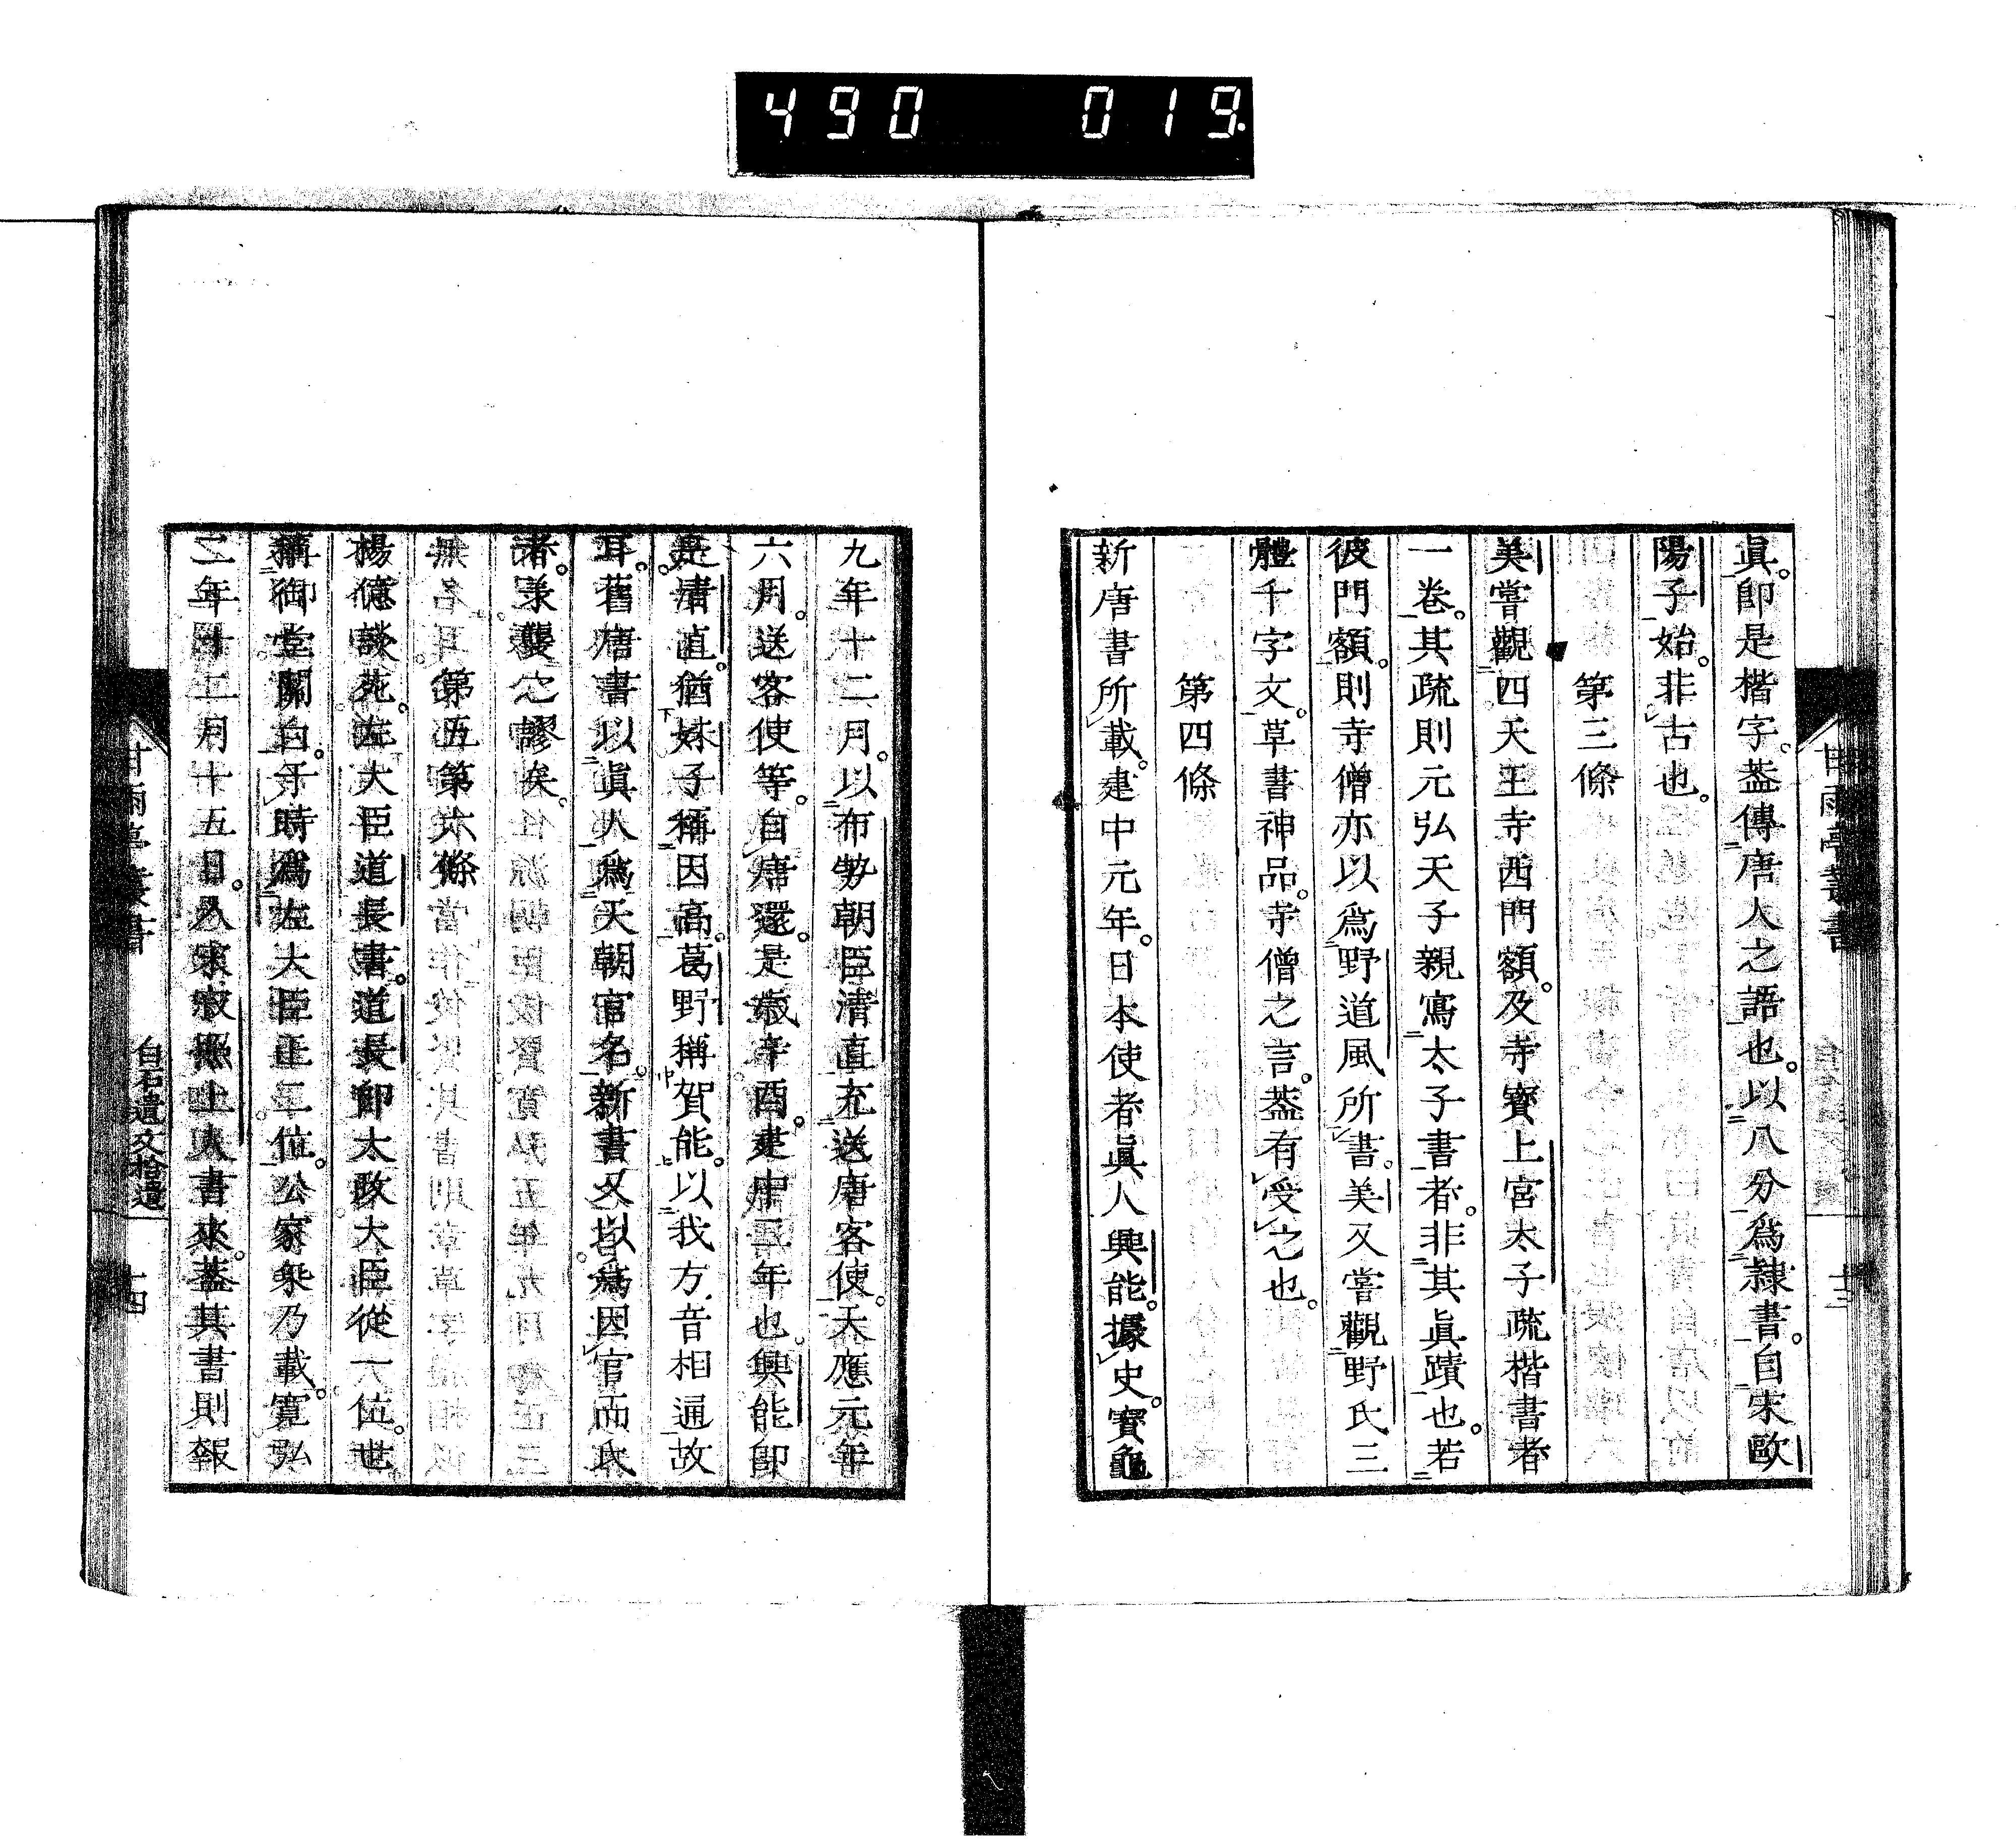 490 019
眞。卽是楷字。葢傳唐人之語也。以八分爲隸書。自宋歐
陽子始。非古也。
第三條
美嘗觀四天王寺西門額。及寺寶上宮太子疏楷書者
一卷。其疏則元弘天子親寫太子書者。非其眞蹟也。若
彼門額。則寺僧亦以爲野道風所書。美又嘗觀野氏三
體千字文。草書神品。寺僧之言。葢有受之也。
第四條
新唐書所載。建中元年。日本使者眞人興能。據史。寶龜
甘雨亭叢書
十三
九年十二月。以布勢朝臣淸直充送唐客使。天應元年
六月。送客使等。自唐還。是歲辛酉。建中二年也。興能卽
是淸直。猶妹子稱因高。葛野稱賀能。以我方音相通故
耳。舊唐書以眞人爲天朝官名。新書又以爲因官而氏
者。承襲之謬矣。
第五第六條
楊億談苑。左大臣道長書。道長卽太政大臣從一位。世
稱御堂關白。于時爲左大臣正二位。公家乗乃載。寬弘
二年十二月十五日。入宋寂照上人書來。葢其書則報
甘雨亭叢書
白石遺文拾遺
十四